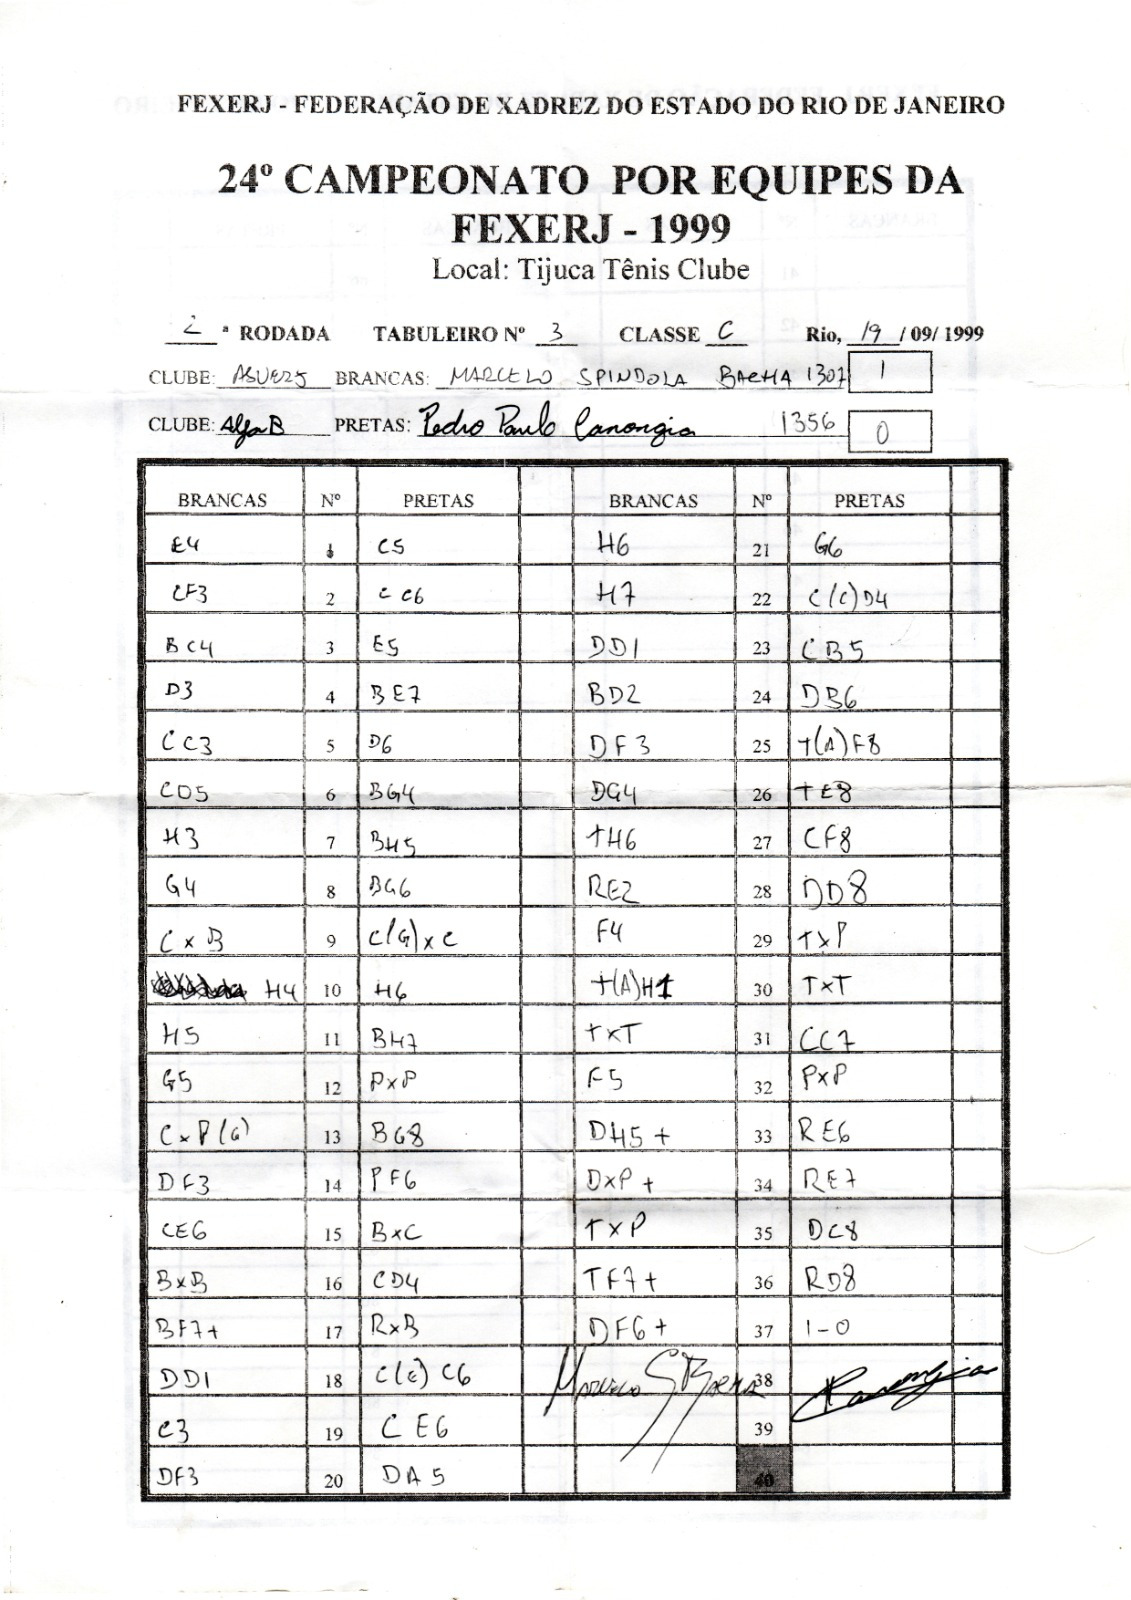 FEXERJ - FEDERAÇÃO DE XADREZ DO ESTADO DO RIO DE JANEIRO
24º CAMPEONATO POR EQUIPES DA
FEXERJ - 1999
Local: Tijuca Tênis Clube
2 ª RODADA TABULEIRO Nº 3 CLASSE C Rio, 19 / 09/ 1999
CLUBE: ASUERJ BRANCAS: MARCELO SPINDOLA BACHA 1307 1
CLUBE: Alfa B PRETAS: Pedro Paulo Canongia 1356 0
BRANCAS Nº PRETAS BRANCAS Nº PRETAS
E4 1 C5 H6 21 G6
CF3 2 C C6 H7 22 C(C)D4
BC4 3 E5 DD1 23 CB5
D3 4 BE7 BD2 24 DB6
CC3 5 D6 DF3 25 T(A)F8
CD5 6 BG4 DG4 26 TE8
H3 7 BH5 TH6 27 CF8
G4 8 BG6 RE2 28 DD8
C x B 9 C(G)xC F4 29 TxP
H4 10 H6 T(A)H1 30 TxT
H5 11 BH7 TxT 31 CC7
G5 12 PxP F5 32 PxP
CxP(G) 13 BG8 DH5 + 33 RE6
DF3 14 PF6 DxP + 34 RE7
CE6 15 BxC TxP 35 DC8
BxB 16 CD4 TF7+ 36 RD8
BF7+ 17 RxB DF6 + 37 1-0
DD1 18 C(E) C6 Marcelo S. Bacha 38 Canongia
C3 19 C E6 39
DF3 20 DA5 40